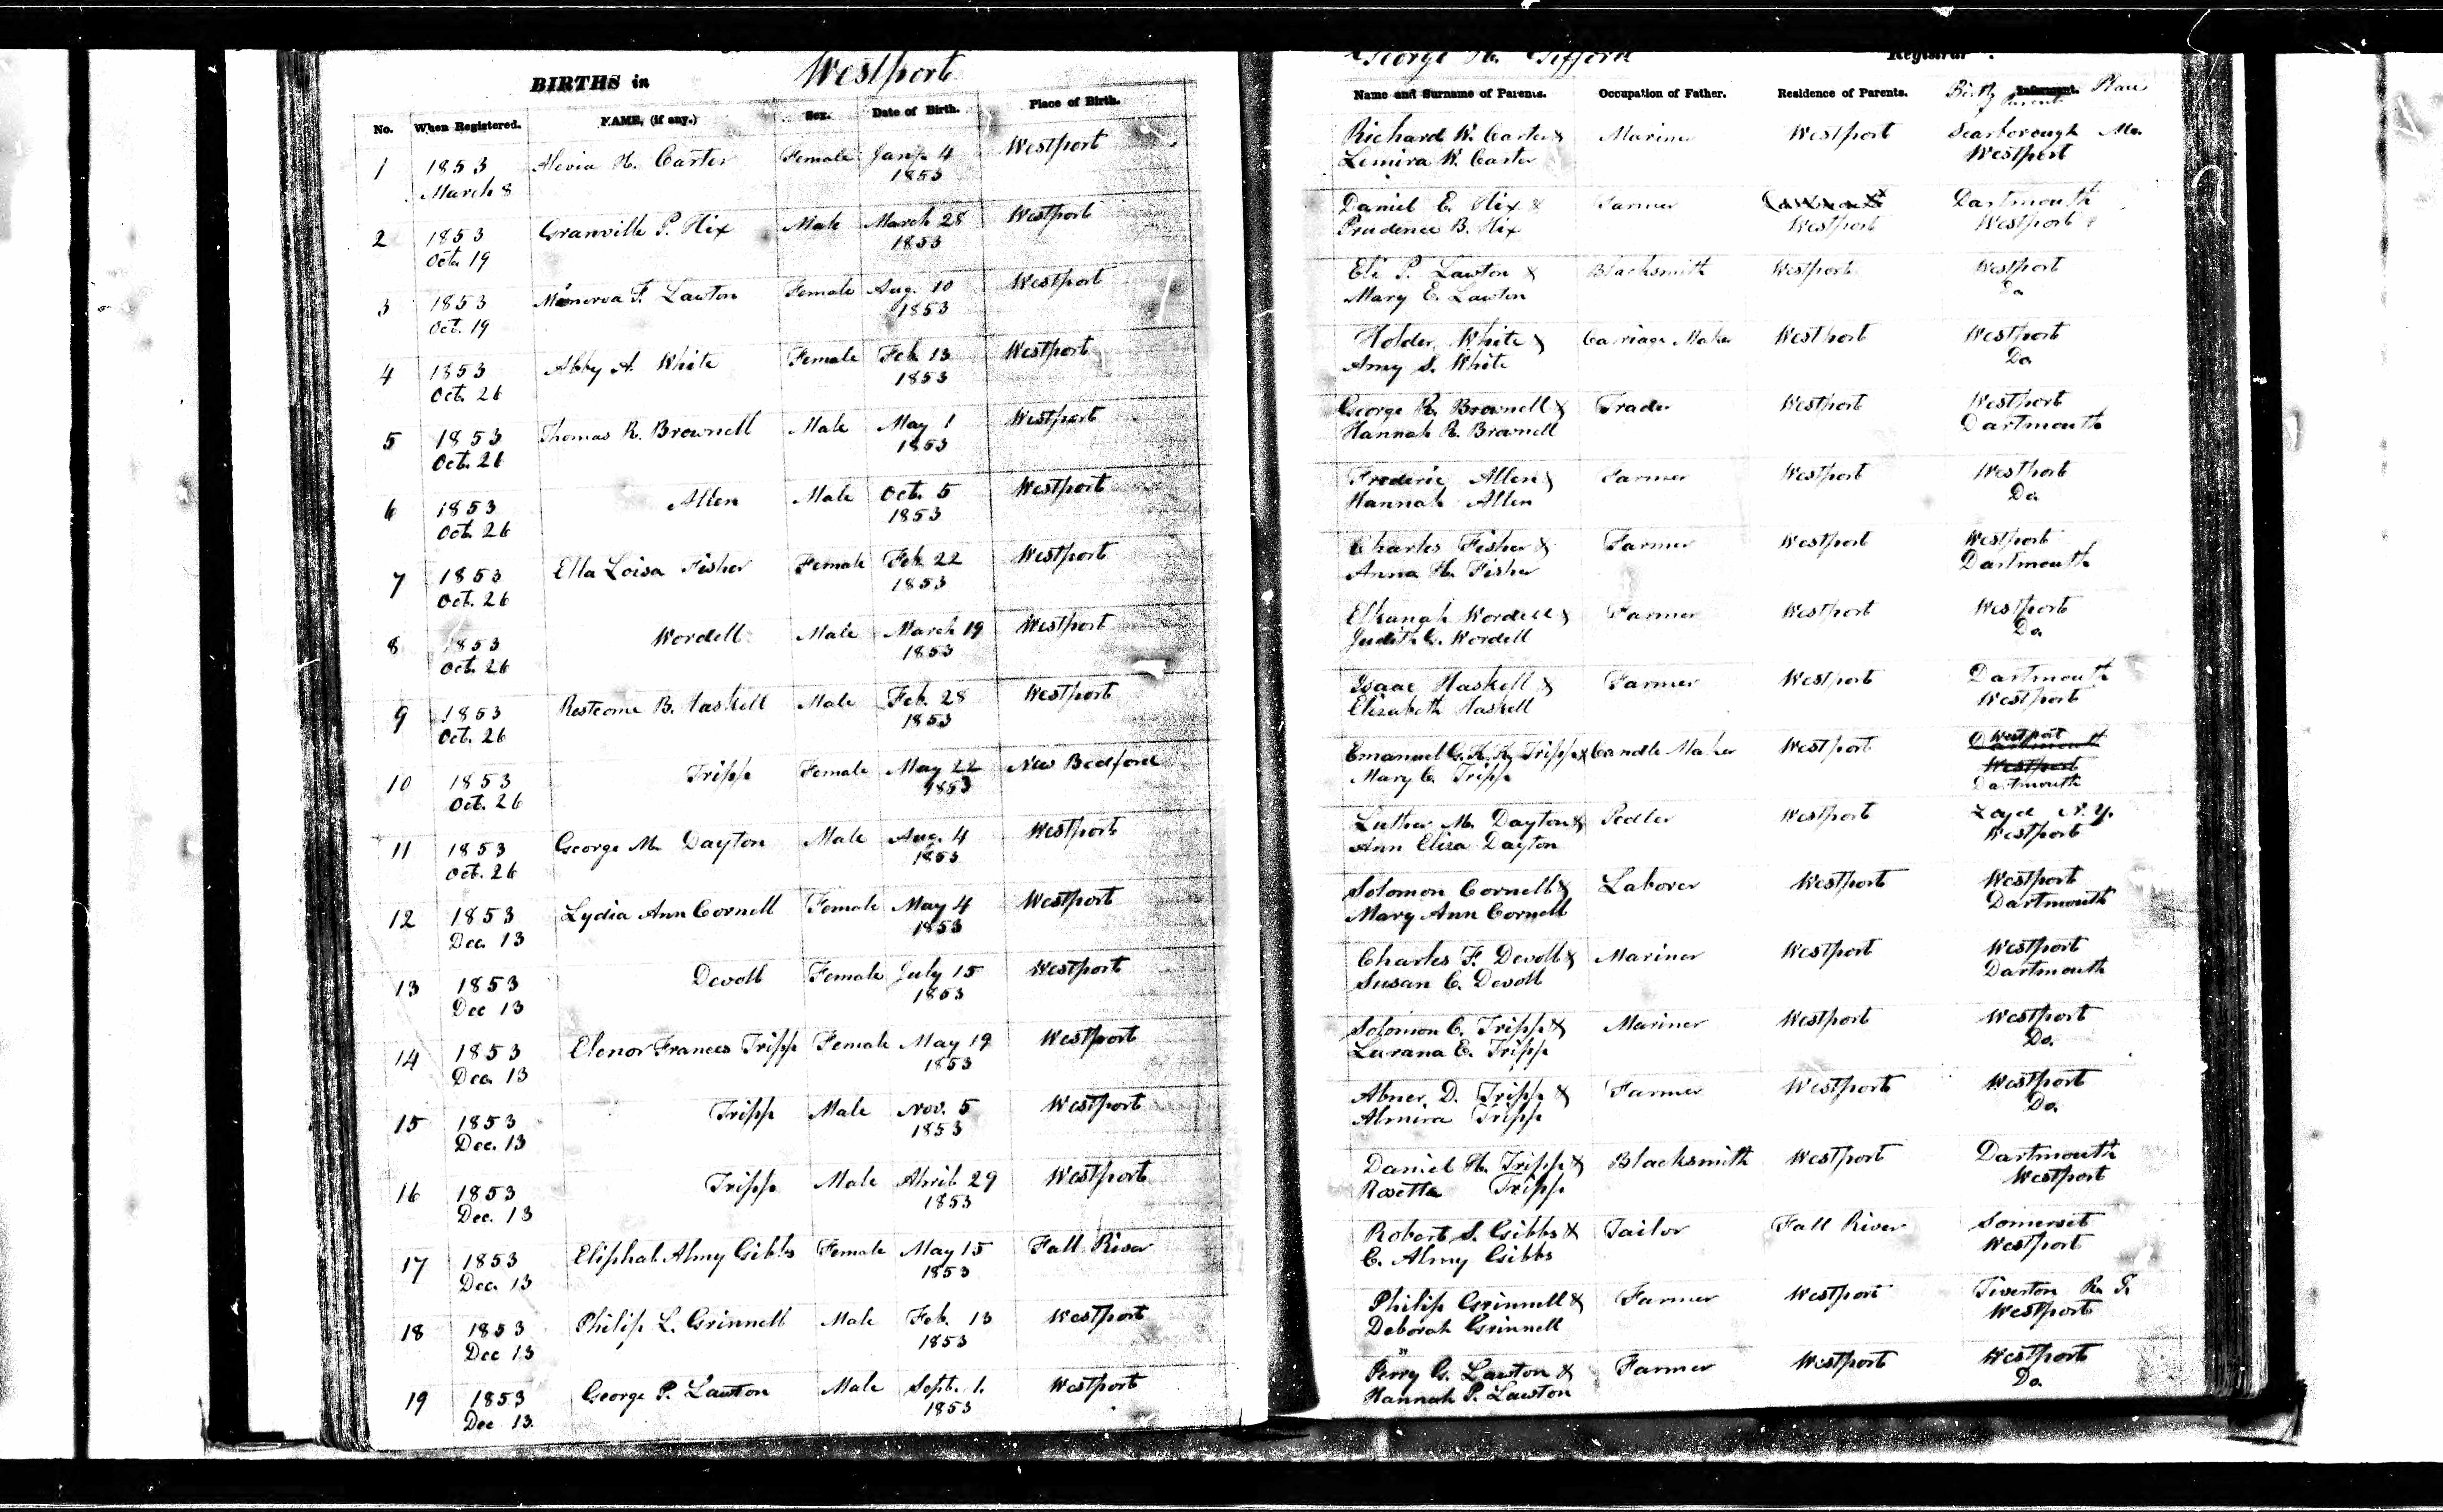 BIRTHS in Westport George H. Gifford Registrar.
No. When Registered. NAME, (if any.) Sex. Date of Birth. Place of Birth. Name and Surname of Parents. Occupation of Father. Residence of Parents. Birth Place
Informant.
Parents
1 1853 Alevia H. Carter Female Jany. 4 Westport Richard W. Carter & Mariner Westport Scarborough Me.
March 8 1853 Lemira W. Carter Westport
2 1853 Granville P. Hix Male March 28 Westport Daniel E. Hix & Farmer Dartmouth
Oct. 19 1853 Prudence B. Hix Westport Westport
3 1853 Minerva F. Lawton Female Aug. 10 Westport Eli P. Lawton & Blacksmith Westport Westport
Oct. 19 1853 Mary E. Lawton Do
4 1853 Abby A. White Female Feb. 13 Westport Holder White & Carriage Maker Westport Westport
Oct. 26 1853 Amy S. White Do.
5 1853 Thomas R. Brownell Male May 1 Westport George R. Brownell & Trader Westport Westport
Oct. 26 1853 Hannah R. Brownell Dartmouth
6 1853 Allen Male Oct. 5 Westport Frederic Allen & Farmer Westport Westport
Oct. 26 1853 Hannah Allen Do.
7 1853 Ella Loisa Fisher Female Feb. 22 Westport Charles Fisher & Farmer Westport Westport
Oct. 26 1853 Anna H. Fisher Dartmouth
8 1853 Wordell Male March 19 Westport Elkanah Wordell & Farmer Westport Westport
Oct. 26 1853 Judith G. Wordell Do.
9 1853 Restcome B. Haskell Male Feb. 28 Westport Isaac Haskell & Farmer Westport Dartmouth
Oct. 26 1853 Elizabeth Haskell Westport
10 1853 Tripp Female May 22 New Bedford Emanuel G. H. H. Tripp & Candle Maker Westport Dartmouth Westport
Oct. 26 1853 Mary C. Tripp Westport
Dartmouth
11 1853 George M. Dayton Male Aug. 4 Westport Luther M. Dayton & Pedler Westport N. Y.
Oct. 26 1853 Ann Eliza Dayton Westport
12 1853 Lydia Ann Cornell Female May 4 Westport Solomon Cornell & Laborer Westport Westport
Dec. 13 1853 Mary Ann Cornell Dartmouth
13 1853 Devoll Female July 15 Westport Charles F. Devoll & Mariner Westport Westport
Dec 13 1853 Susan C. Devoll Dartmouth
14 1853 Elenor Frances Tripp Female May 19 Westport Solomon C. Tripp & Mariner Westport Westport
Dec. 13 1853 Lurana E. Tripp Do.
15 1853 Tripp Male Nov. 5 Westport Abner D. Tripp & Farmer Westport Westport
Dec. 13 1853 Almira Tripp Do.
16 1853 Tripp Male April 29 Westport Daniel H. Tripp & Blacksmith Westport Dartmouth
Dec. 13 1853 Rosetta Tripp Westport
17 1853 Eliphal Almy Gibbs Female May 15 Fall River Robert S. Gibbs & Tailor Fall River Somerset
Dec. 13 1853 E. Almy Gibbs Westport
18 1853 Philip L. Grinnell Male Feb. 13 Westport Philip Grinnell & Farmer Westport Tiverton R. I.
Dec 13 1853 Deborah Grinnell Westport
19 1853 George P. Lawton Male Sept. 1. Westport Perry G. Lawton & Farmer Westport Westport
Dec 13. 1853 Hannah P. Lawton Do.